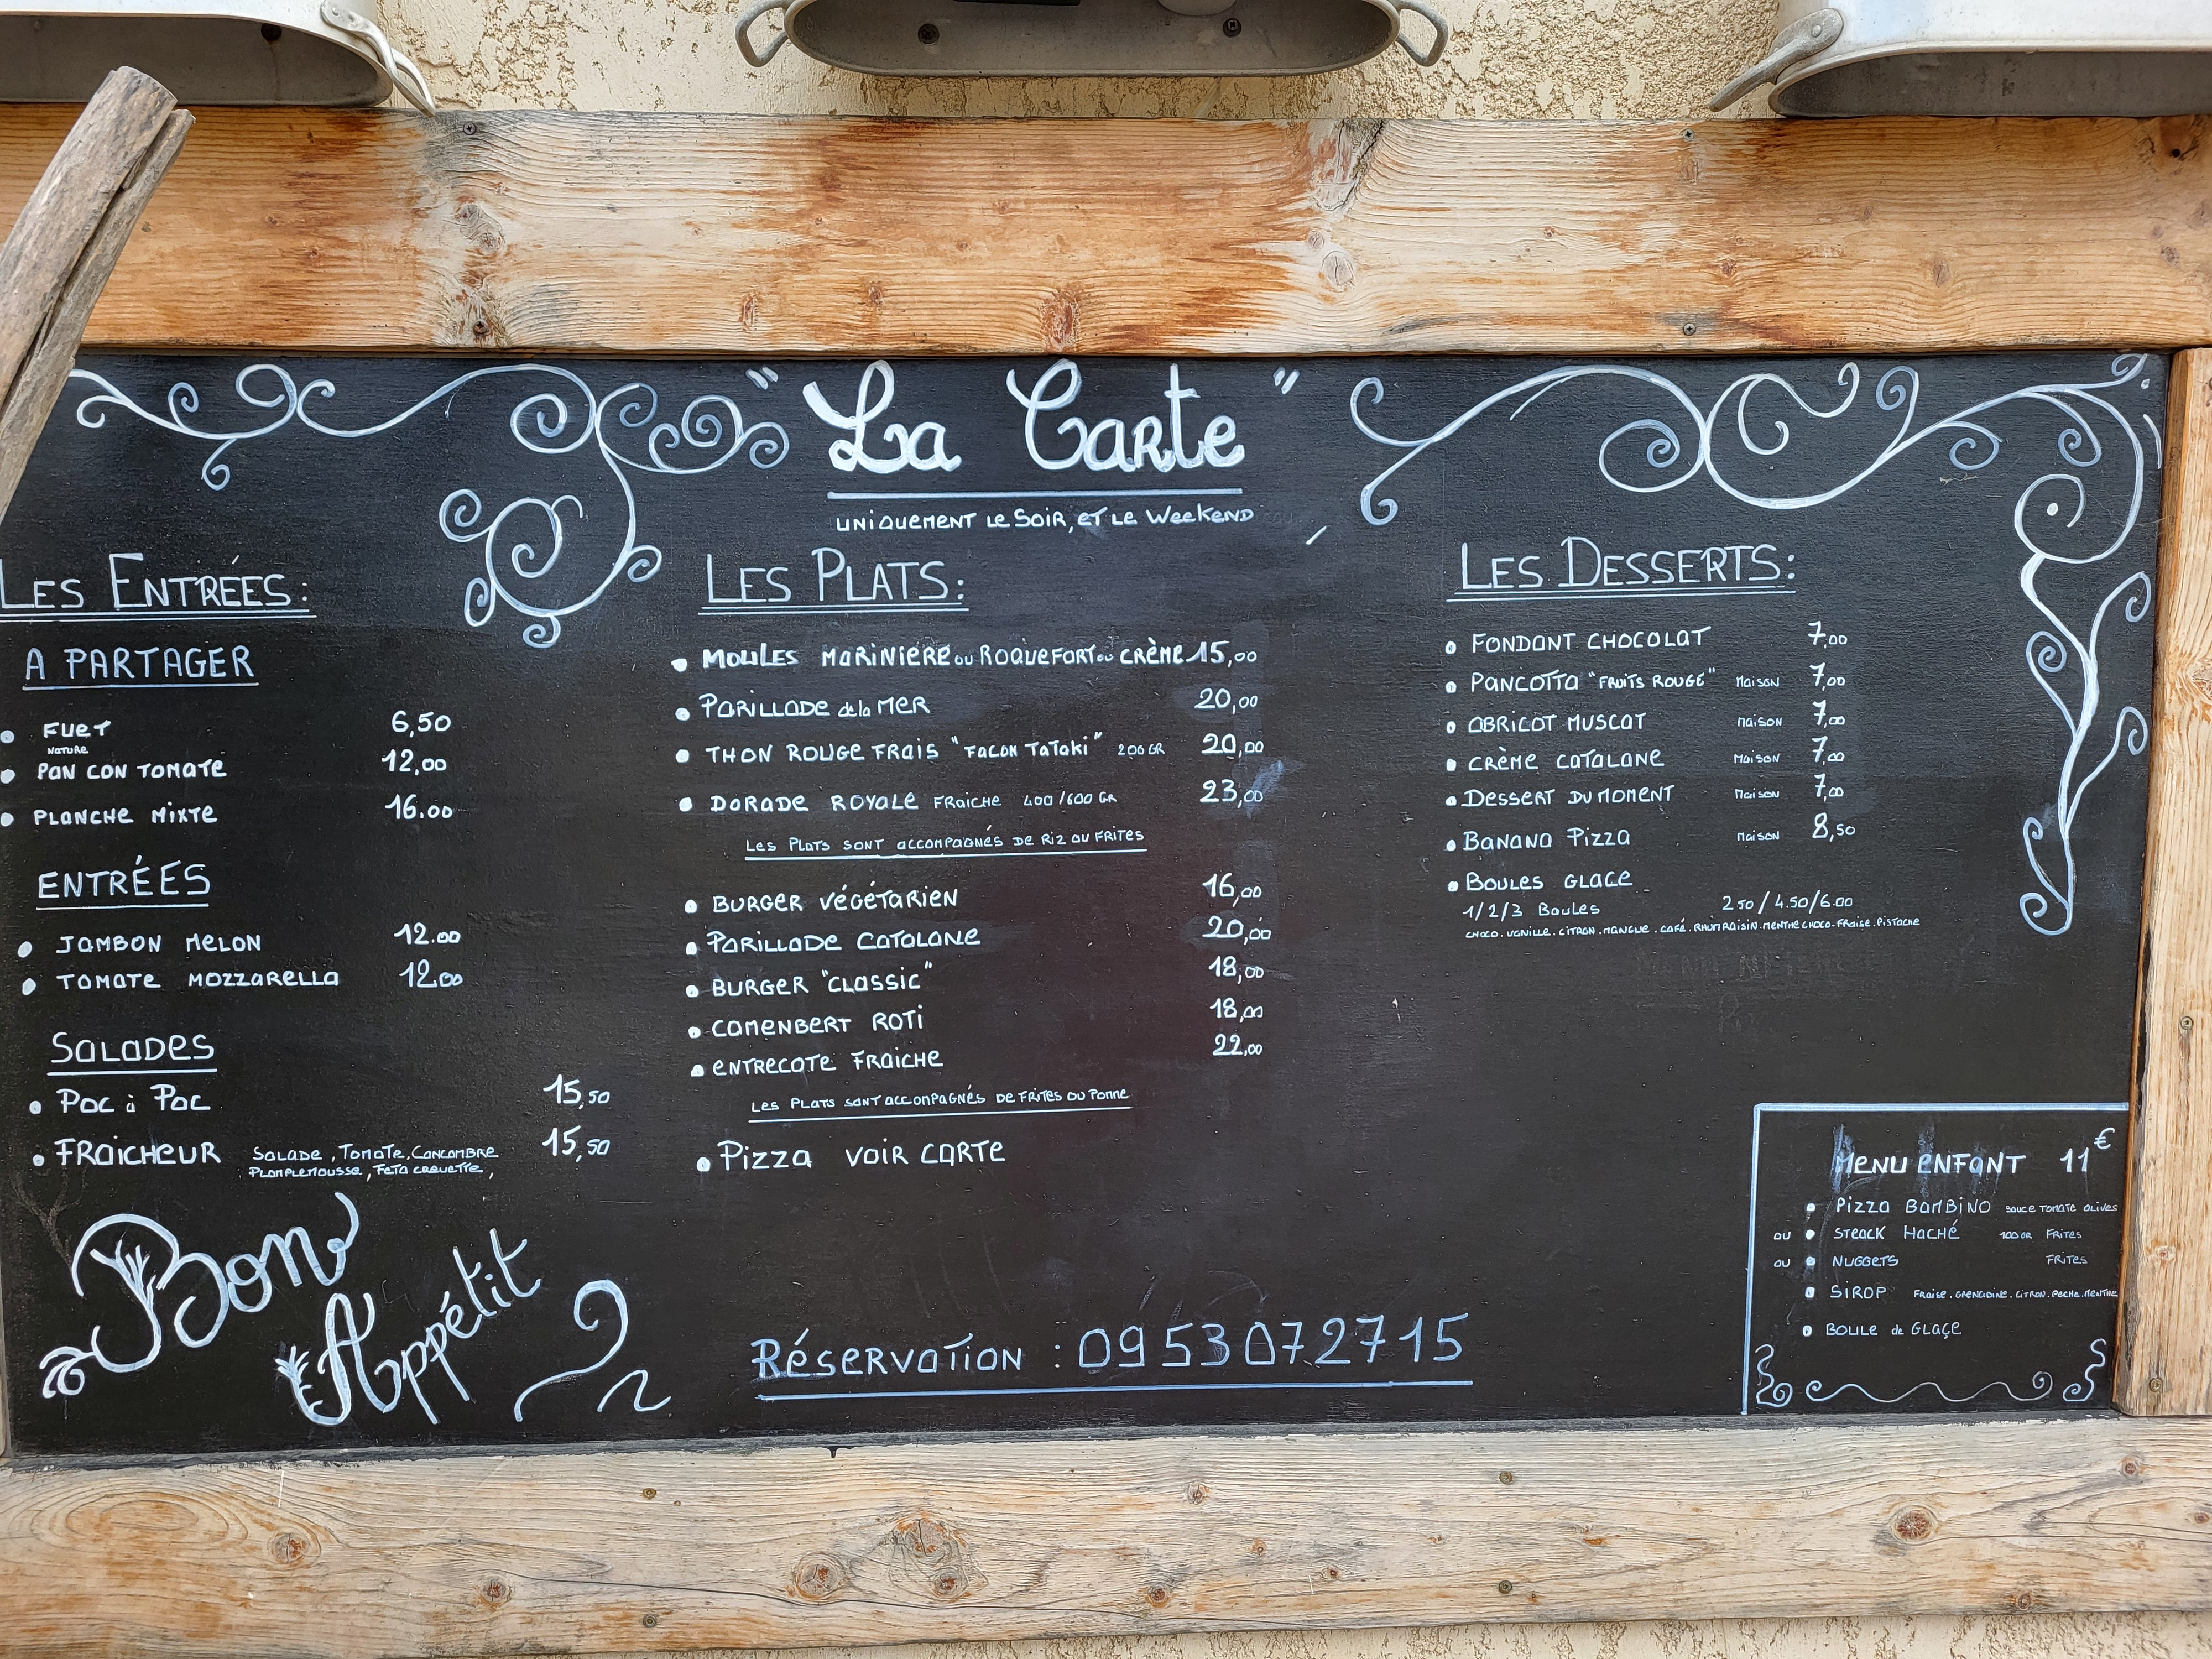 "La Carte"
UNIQUEMENT LE SOIR, ET LE WEEKEND
LES ENTRÉES:
A PARTAGER
• FUET 6,50
NATURE
• PAN CON TOMATE 12,00
• PLANCHE MIXTE 16.00
ENTRÉES
• JAMBON MELON 12.00
• TOMATE MOZZARELLA 12.00
SALADES
• POC à POC 15,50
• FRAICHEUR SALADE, TOMATE, CONCOMBRE 15,50
PLAMPLEMOUSSE, FETA CREVETTE,
Bon
Appétit
LES PLATS:
• MOULES MARINIERE OU ROQUEFORT OU CRÈME 15,00
• PARILLADE de la MER 20,00
• THON ROUGE FRAIS "FACON TATAKI" 200 GR 20,00
• DORADE ROYALE FRAICHE 400/600 GR 23,00
LES PLATS SONT ACCOMPAGNÉS DE RIZ OU FRITES
• BURGER VÉGÉTARIEN 16,00
• PARILLADE CATALANE 20,00
• BURGER "CLASSIC" 18,00
• CAMENBERT ROTI 18,00
• ENTRECOTE FRAICHE 22,00
LES PLATS SONT ACCOMPAGNÉS DE FRITES OU POMME
• PIZZA VOIR CARTE
RÉSERVATION : 0953072715
LES DESSERTS:
• FONDANT CHOCOLAT 7,00
• PANCOTTA "FRUITS ROUGE" MAISON 7,00
• ABRICOT MUSCAT MAISON 7,00
• CRÈME CATALANE MAISON 7,00
• DESSERT DU MOMENT MAISON 7,00
• BANANA PIZZA MAISON 8,50
• BOULES GLACE
1/2/3 BOULES 2 50/4.50/6.00
CHOCO.VANILLE.CITRON.MANGUE.CAFÉ.RHUM RAISIN.MENTHE CHOCO.FRAISE.PISTACHE
MENU ENFANT 11€
• PIZZA BAMBINO SAUCE TOMATE OLIVES
OU • STEACK HACHÉ 100GR FRITES
OU • NUGGETS FRITES
• SIROP FRAISE.GRENADINE.CITRON.PECHE.MENTHE
• BOULE de GLAÇE